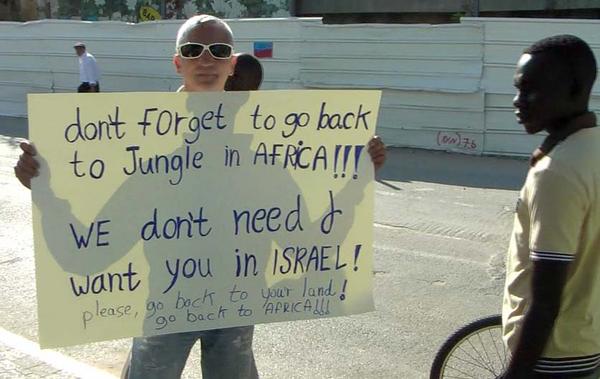 dont forget to go back
to Jungle in AFRICA!!!
WE don't need &
want you in ISRAEL!
please, go back to your land!
go back to AFRICA!!!